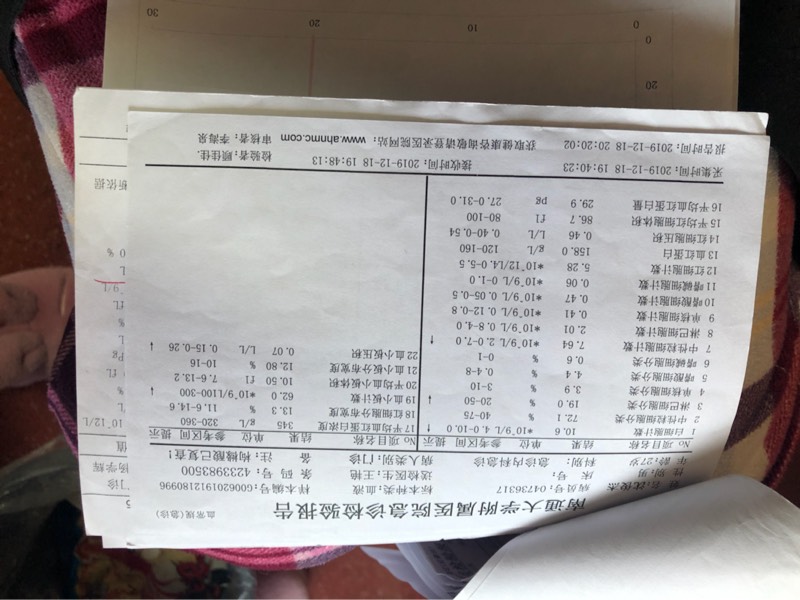 血常规(急诊)
南通大学附属医院急诊检验报告
病员号:04736317 标本种类:血液 样本编号:G006201912180996
性 别:男 床 号: 送检医生:王艳 条 码 号:4233983500
年 龄:27岁 科别:急诊内科急诊 病人类别:门诊 备 注:枸橼酸已复查!
No 项目名称 结果 单位 参考区间 提示
1 白细胞计数 10.6 *10^9/L 4.0-10.0 ↑
2 中性粒细胞分类 72.1 % 40-75
3 淋巴细胞分类 19.0 % 20-50 ↓
4 单核细胞分类 3.9 % 3-10
5 嗜酸细胞分类 4.4 % 0.4-8
6 嗜碱细胞分类 0.6 % 0-1
7 中性粒细胞计数 7.64 *10^9/L 2.0-7.0 ↑
8 淋巴细胞计数 2.01 *10^9/L 0.8-4.0
9 单核细胞计数 0.41 *10^9/L 0.12-0.8
10 嗜酸细胞计数 0.47 *10^9/L 0.05-0.5
11 嗜碱细胞计数 0.06 *10^9/L 0-1.0
12 红细胞计数 5.28 *10^12/L 4.0-5.5
13 血红蛋白 158.0 g/L 120-160
14 红细胞压积 0.46 L/L 0.40-0.54
15 平均红细胞体积 86.7 fl 80-100
16 平均血红蛋白量 29.9 pg 27.0-31.0
No 项目名称 结果 单位 参考区间 提示
17 平均血红蛋白浓度 345 g/L 320-360
18 红细胞分布宽度 13.3 % 11.6-14.6
19 血小板计数 62.0 *10^9/L 100-300 ↓
20 平均血小板体积 10.50 fl 7.6-13.2
21 血小板分布宽度 12.80 % 10-16
22 血小板压积 0.07 L/L 0.15-0.26 ↓
采集时间:2019-12-18 19:40:23 接收时间:2019-12-18 19:48:13 检验者:顾佳佳
报告时间:2019-12-18 20:20:02 获取健康咨询敬请登录医院网站:www.ahnmc.com 审核者:李海泉
门诊
杨学辉
值
10^12/L
L
%
Pg
L
%
fL
9/L
L
0 %
析依据
20
0
0
10
20
30